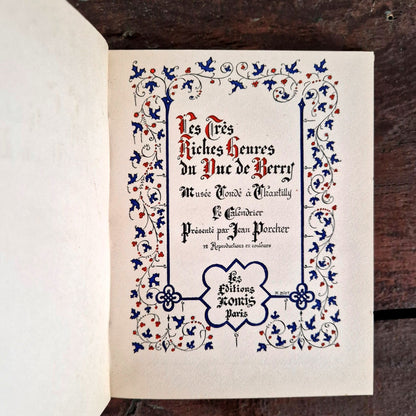 Les Très
Riches Heures
du Duc de Berry
Musée Condé à Chantilly
Le Calendrier
Présenté par Jean Porcher
12 Reproductions en couleurs
Les
Editions
NOMIS
Paris